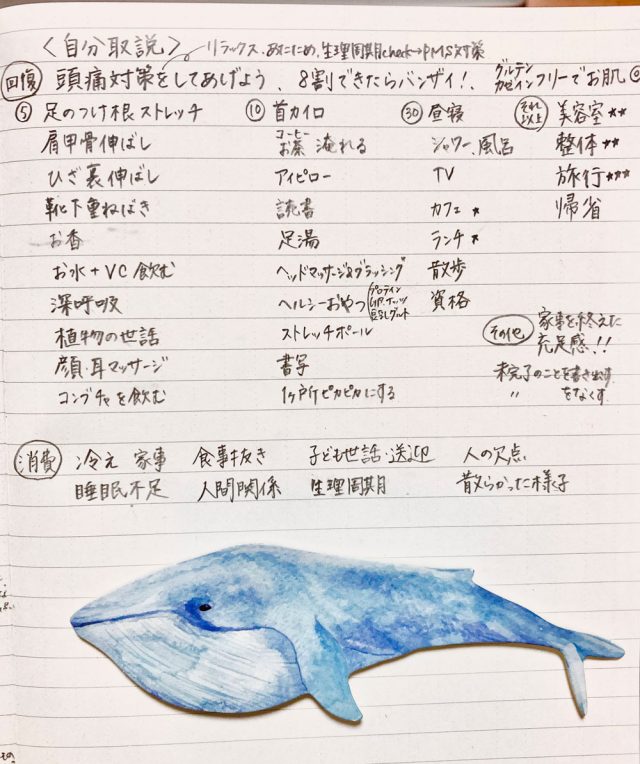 〈自分取説〉 リラックス、あたため、生理周期check→PMS対策
回復 頭痛対策をしてあげよう、8割できたらバンザイ!、グルテン カゼインフリーでお肌◎
⑤ 足のつけ根ストレッチ ⑩ 首カイロ ㉚ 昼寝 それ以上 美容室★★
肩甲骨伸ばし コーヒー お茶 淹れる シャワー、風呂 整体★★
ひざ裏伸ばし アイピロー TV 旅行★★★
靴下重ねばき 読書 カフェ★ 帰省
お香 足湯 ランチ★
お水+VC飲む ヘッドマッサージ&ブラッシング 散歩
深呼吸 ヘルシーおやつ プロテイン ナッツ 豆乳グルト 資格
植物の世話 ストレッチポール その他 家事を終えた充足感!!
顔・耳マッサージ 書写 未完了のことを書き出す
コンブチャを飲む 1ヶ所ピカピカにする 〃 をなくす
消費 冷え 家事 食事抜き 子ども世話・送迎 人の欠点
睡眠不足 人間関係 生理周期 散らかった様子